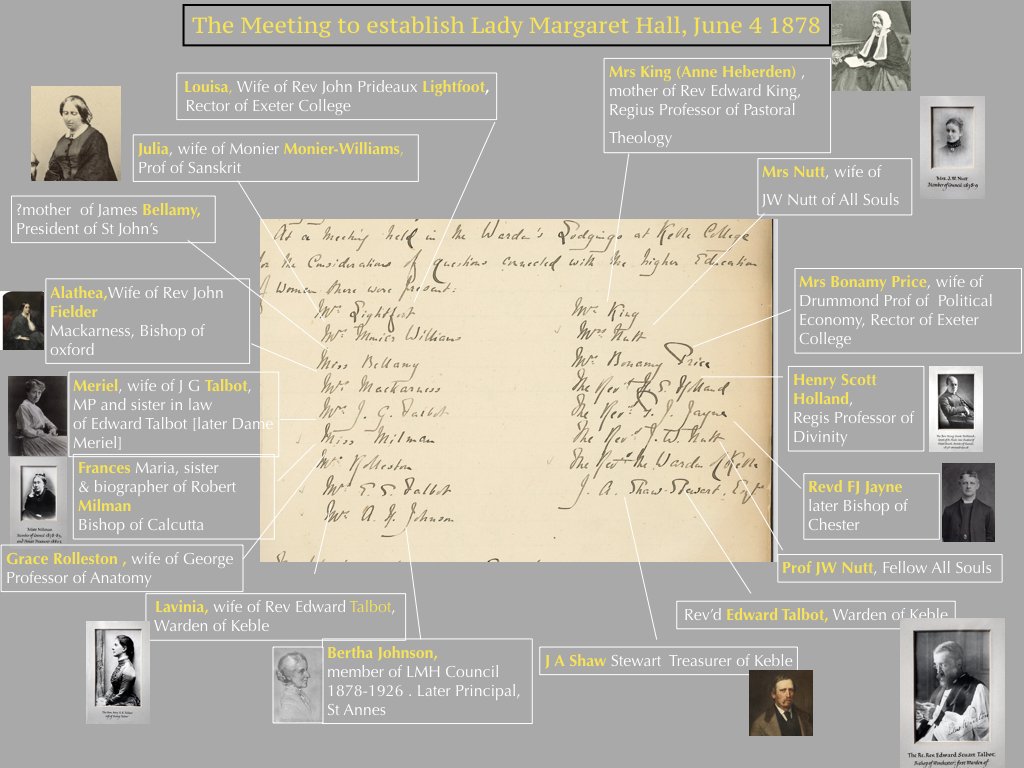 The Meeting to establish Lady Margaret Hall, June 4 1878
Louisa, Wife of Rev John Prideaux Lightfoot,
Rector of Exeter College
Mrs King (Anne Heberden) ,
mother of Rev Edward King,
Regius Professor of Pastoral
Theology
Julia, wife of Monier Monier-Williams,
Prof of Sanskrit
Mrs J. W. Nutt
Member of Council 1878-9
Mrs Nutt, wife of
JW Nutt of All Souls
?mother of James Bellamy,
President of St John's
At a meeting held in the Warden's Lodgings at Keble College
for the Consideration of questions connected with the higher Education
of Women there were present:
Mrs Lightfoot
Mrs Monier Williams
Miss Bellamy
Mrs Mackarness
Mrs J. G. Talbot
Miss Milman
Mrs Rolleston
Mrs E. S. Talbot
Mrs A. H. Johnson
Mrs King
Mrs Nutt
Mrs Bonamy Price
The Revd H. S. Holland
The Revd F. J. Jayne
The Revd J. W. Nutt
The Revd the Warden of Keble
J. A. Shaw-Stewart, Esqr
Alathea,Wife of Rev John
Fielder
Mackarness, Bishop of
oxford
Mrs Bonamy Price, wife of
Drummond Prof of Political
Economy, Rector of Exeter
College
Meriel, wife of J G Talbot,
MP and sister in law
of Edward Talbot [later Dame
Meriel]
Henry Scott
Holland,
Regis Professor of
Divinity
Frances Maria, sister
& biographer of Robert
Milman
Bishop of Calcutta
Miss Milman
Revd FJ Jayne
later Bishop of
Chester
Grace Rolleston , wife of George
Professor of Anatomy
Prof JW Nutt, Fellow All Souls
Lavinia, wife of Rev Edward Talbot,
Warden of Keble
Rev'd Edward Talbot, Warden of Keble
Bertha Johnson,
member of LMH Council
1878-1926 . Later Principal,
St Annes
J A Shaw Stewart Treasurer of Keble
The Rt. Rev. Edward Stuart Talbot.
Bishop of Winchester; first Warden of